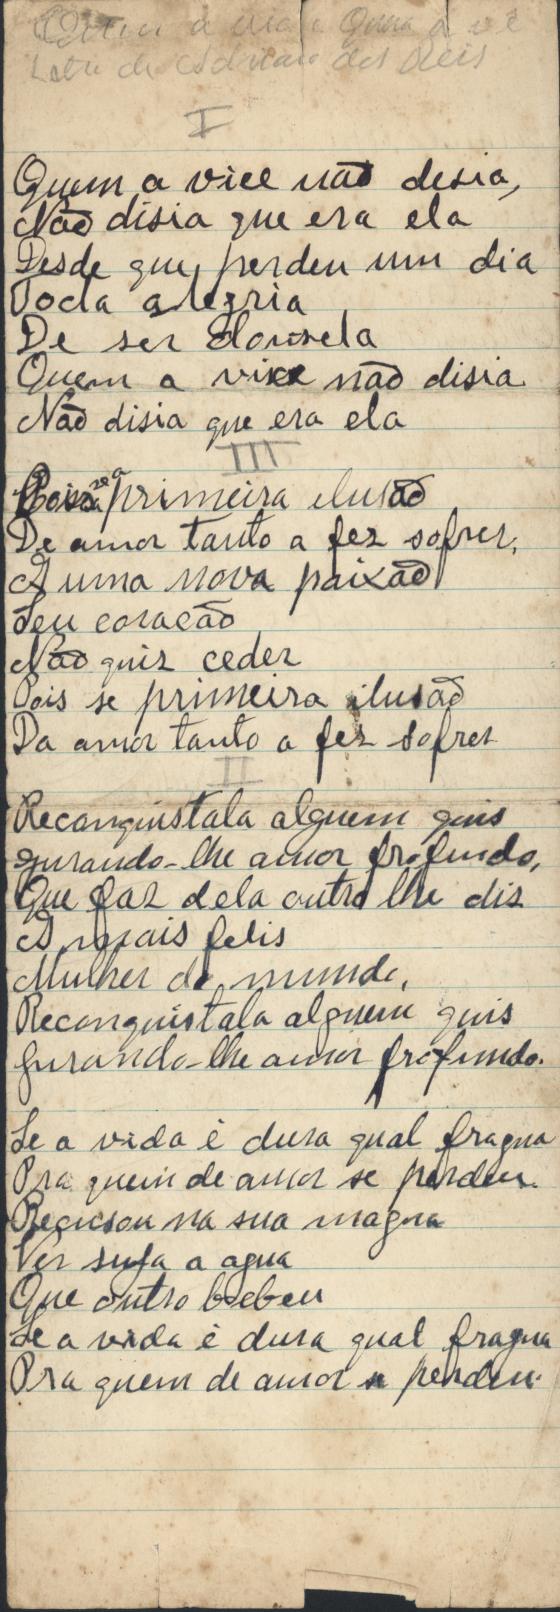 Letra de Adriano dos Reis
I
Quem a vice não desia,
Não disia que era ela
Desde que perdeu um dia
Toda alegria
De ser donzela
Quem a vice não disia
Não disia que era ela
III
Pois se a primeira ilusão
De amor tanto a fez sofrer,
A uma nova paixão
Seu coração
Não quiz ceder
Pois se primeira ilusão
Da amor tanto a fez sofrer
II
Reconquistala alguem quis
jurando-lhe amor profundo,
Que faz dela outro lhe diz
A mais felis
Mulher do mundo,
Reconquistala alguem quis
jurando-lhe amor profundo.
Se a vida è dura qual fragua
Pra quem de amor se perdeu.
Recusou na sua magua
Ver suja a agua
Que outro bebeu
Se a vida è dura qual fragua
Pra quem de amor se perdeu.